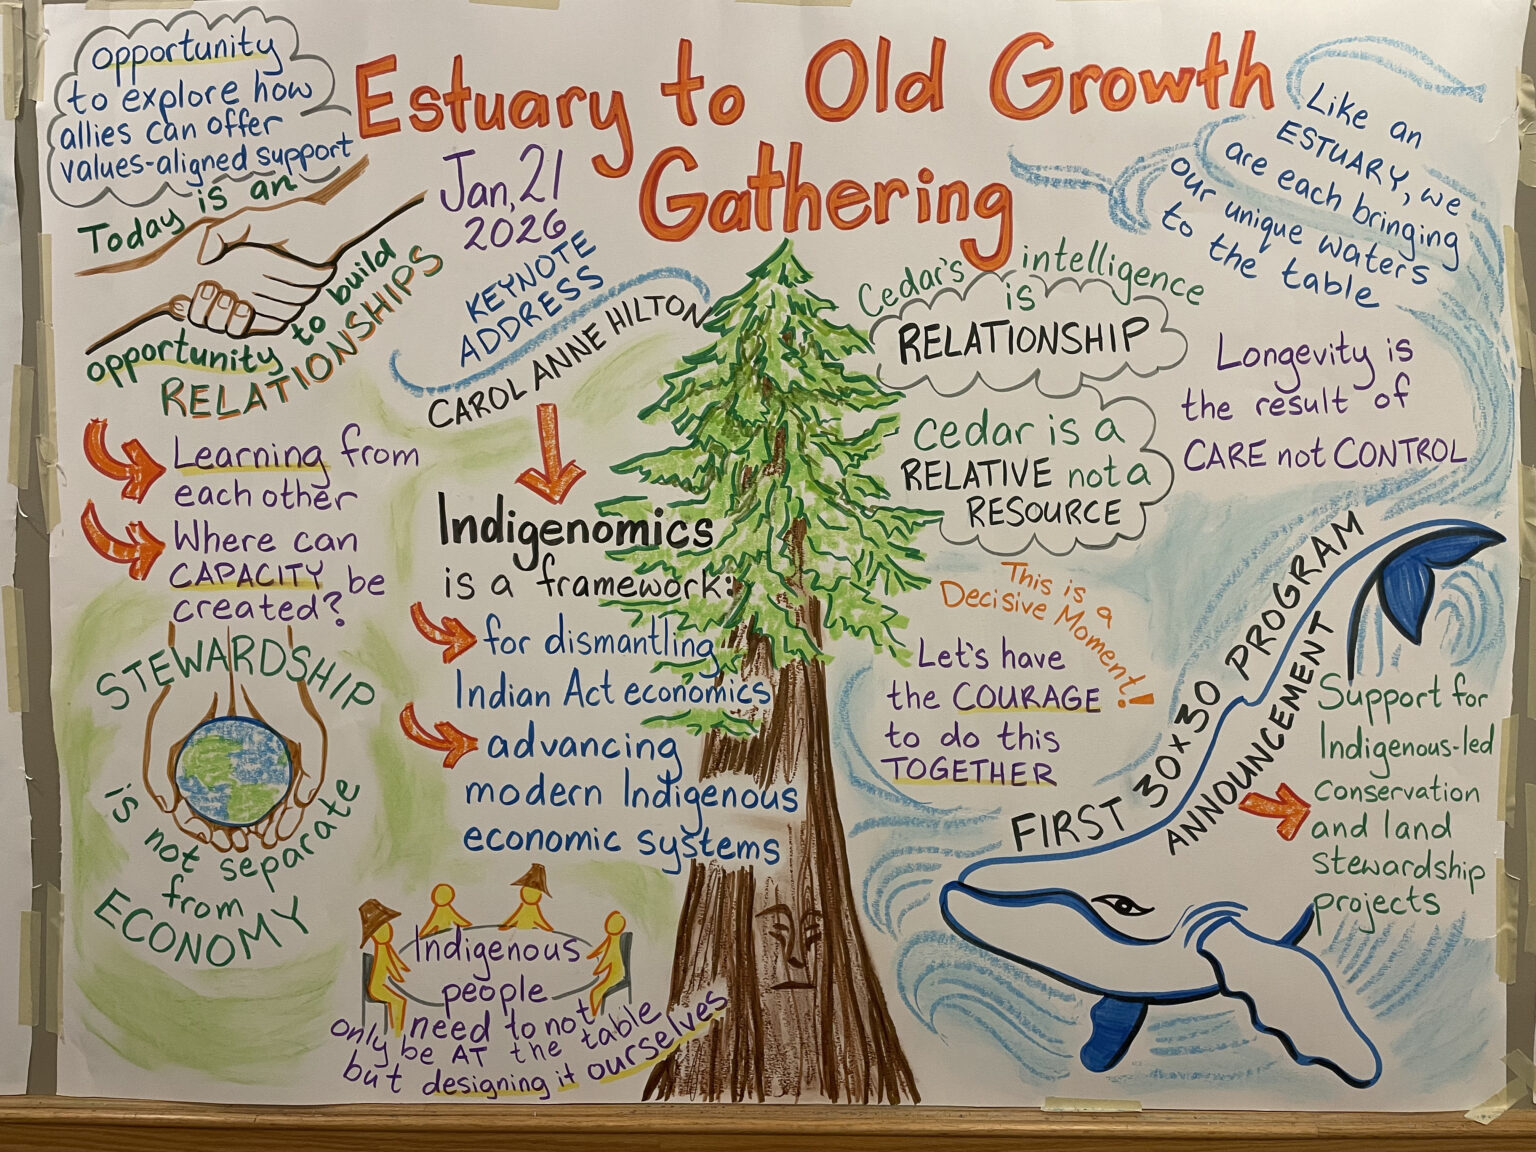 Estuary to Old Growth
Gathering
Jan, 21
2026
opportunity
to explore how
allies can offer
values-aligned support
Today is an
opportunity to build
RELATIONSHIPS
Learning from
each other
Where can
CAPACITY be
created?
STEWARDSHIP
is not separate
from
ECONOMY
KEYNOTE
ADDRESS
CAROL ANNE HILTON
Indigenomics
is a framework:
for dismantling
Indian Act economics
advancing
modern Indigenous
economic systems
Indigenous
people
need to not
only be AT the table
but designing it ourselves
Cedar's intelligence
is
RELATIONSHIP
Cedar is a
RELATIVE not a
RESOURCE
Like an
ESTUARY, we
are each bringing
our unique waters
to the table
Longevity is
the result of
CARE not CONTROL
This is a
Decisive Moment!
Let's have
the COURAGE
to do this
TOGETHER
FIRST 30x30 PROGRAM
ANNOUNCEMENT
Support for
Indigenous-led
conservation
and land
stewardship
projects